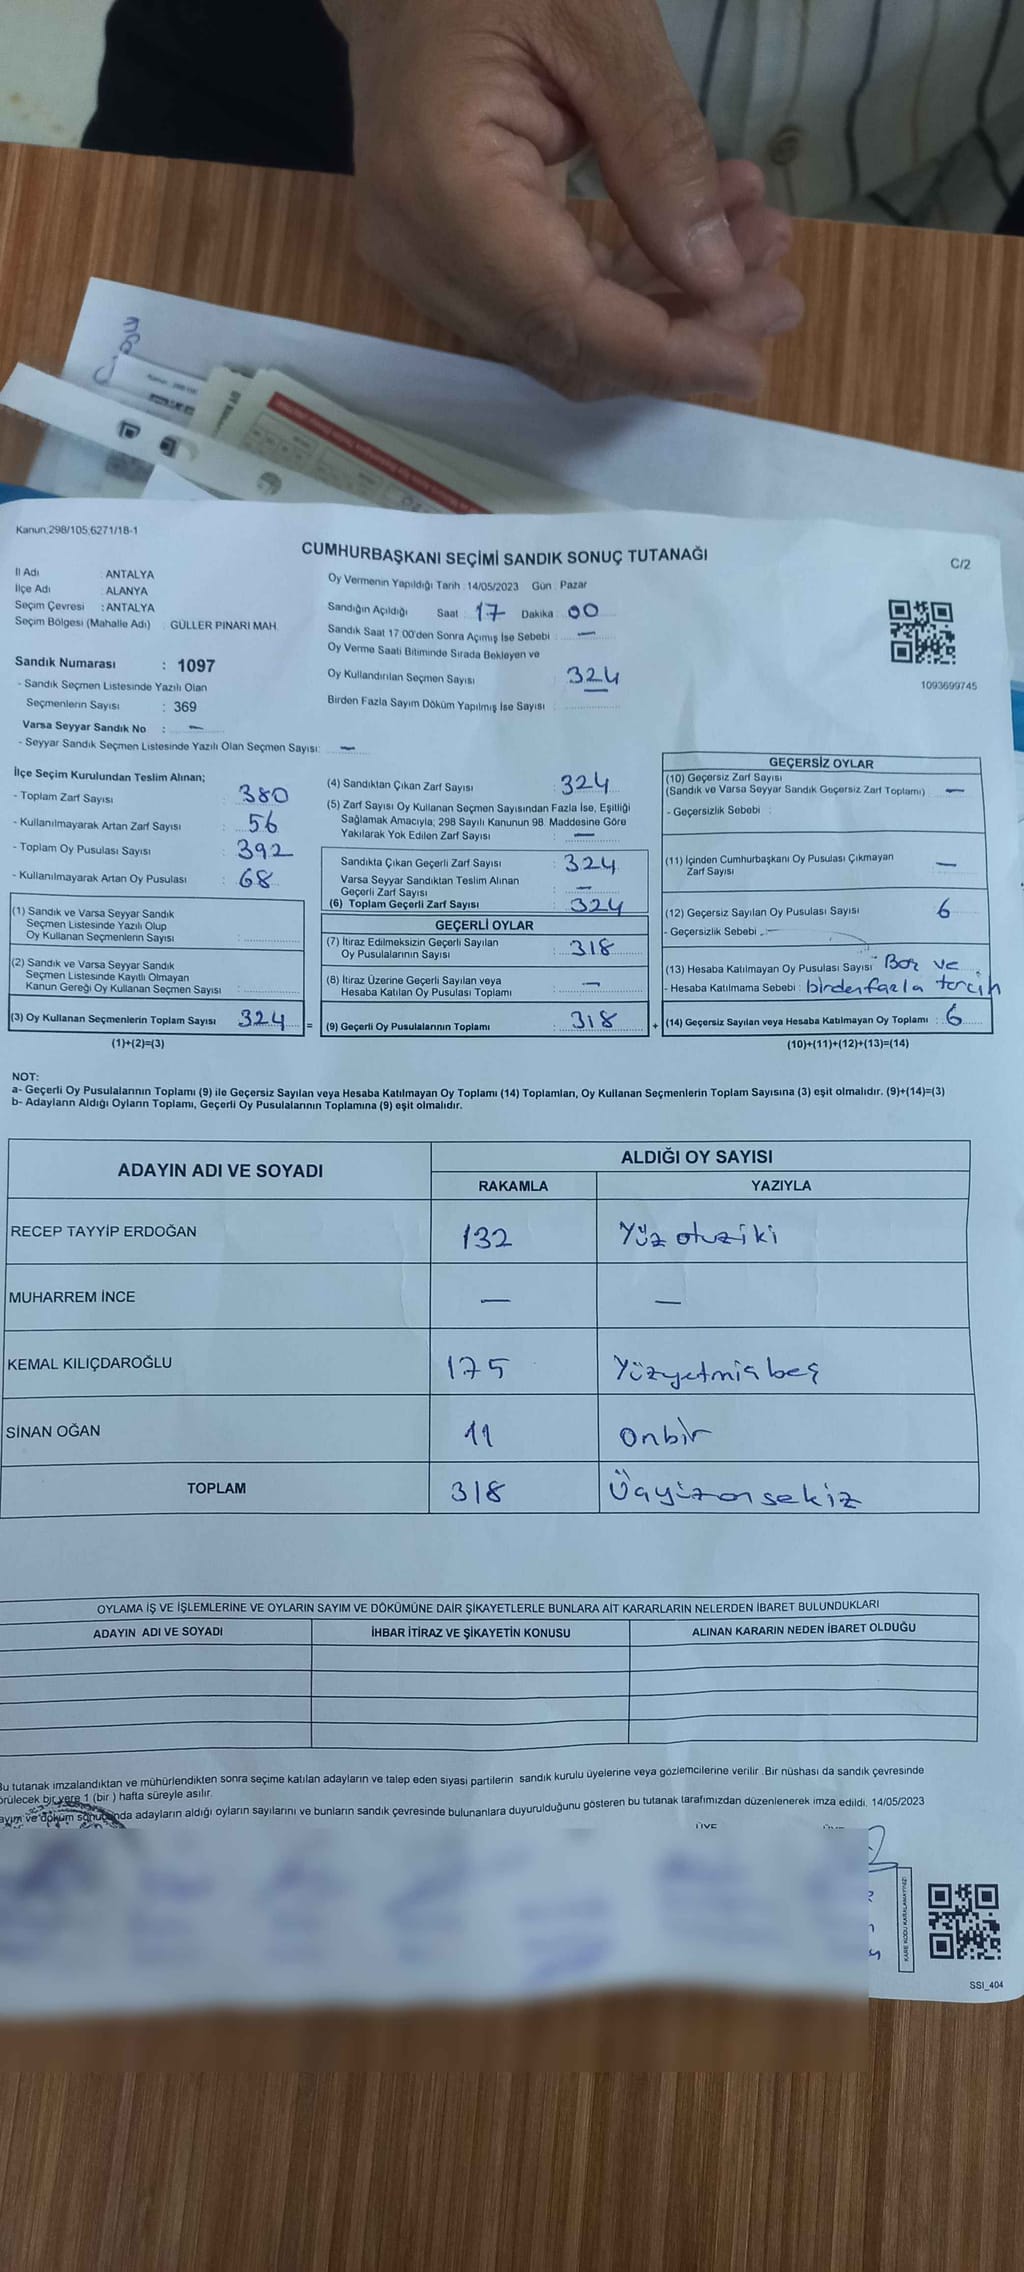 Kanun;298/105;6271/18-1
CUMHURBAŞKANI SEÇİMİ SANDIK SONUÇ TUTANAĞI
C/2
İl Adı : ANTALYA
İlçe Adı : ALANYA
Seçim Çevresi : ANTALYA
Seçim Bölgesi (Mahalle Adı) GÜLLER PINARI MAH.
Sandık Numarası : 1097
- Sandık Seçmen Listesinde Yazılı Olan
Seçmenlerin Sayısı : 369
Varsa Seyyar Sandık No : —
- Seyyar Sandık Seçmen Listesinde Yazılı Olan Seçmen Sayısı: —
Oy Vermenin Yapıldığı Tarih : 14/05/2023 Gün : Pazar
Sandığın Açıldığı Saat : 17 Dakika : 00
Sandık Saat 17:00'den Sonra Açımış İse Sebebi : —
Oy Verme Saati Bitiminde Sırada Bekleyen ve
Oy Kullandırılan Seçmen Sayısı : 324
Birden Fazla Sayım Döküm Yapılmış İse Sayısı :
1093699745
İlçe Seçim Kurulundan Teslim Alınan;
- Toplam Zarf Sayısı : 380
- Kullanılmayarak Artan Zarf Sayısı : 56
- Toplam Oy Pusulası Sayısı : 392
- Kullanılmayarak Artan Oy Pusulası : 68
(1) Sandık ve Varsa Seyyar Sandık
Seçmen Listesinde Yazılı Olup
Oy Kullanan Seçmenlerin Sayısı :
(2) Sandık ve Varsa Seyyar Sandık
Seçmen Listesinde Kayıtlı Olmayan
Kanun Gereği Oy Kullanan Seçmen Sayısı :
(3) Oy Kullanan Seçmenlerin Toplam Sayısı 324 =
(1)+(2)=(3)
(4) Sandıktan Çıkan Zarf Sayısı : 324
(5) Zarf Sayısı Oy Kullanan Seçmen Sayısından Fazla İse, Eşitliği
Sağlamak Amacıyla; 298 Sayılı Kanunun 98. Maddesine Göre
Yakılarak Yok Edilen Zarf Sayısı : —
Sandıkta Çıkan Geçerli Zarf Sayısı : 324
Varsa Seyyar Sandıktan Teslim Alınan
Geçerli Zarf Sayısı : —
(6) Toplam Geçerli Zarf Sayısı : 324
GEÇERLİ OYLAR
(7) İtiraz Edilmeksizin Geçerli Sayılan
Oy Pusulalarının Sayısı : 318
(8) İtiraz Üzerine Geçerli Sayılan veya
Hesaba Katılan Oy Pusulası Toplamı : —
(9) Geçerli Oy Pusulalarının Toplamı : 318 +
GEÇERSİZ OYLAR
(10) Geçersiz Zarf Sayısı
(Sandık ve Varsa Seyyar Sandık Geçersiz Zarf Toplamı) : —
- Geçersizlik Sebebi :
(11) İçinden Cumhurbaşkanı Oy Pusulası Çıkmayan
Zarf Sayısı —
(12) Geçersiz Sayılan Oy Pusulası Sayısı : 6
- Geçersizlik Sebebi :
(13) Hesaba Katılmayan Oy Pusulası Sayısı : Boz ve
- Hesaba Katılmama Sebebi : birden fazla tercih
(14) Geçersiz Sayılan veya Hesaba Katılmayan Oy Toplamı : 6
(10)+(11)+(12)+(13)=(14)
NOT:
a- Geçerli Oy Pusulalarının Toplamı (9) ile Geçersiz Sayılan veya Hesaba Katılmayan Oy Toplamı (14) Toplamları, Oy Kullanan Seçmenlerin Toplam Sayısına (3) eşit olmalıdır. (9)+(14)=(3)
b- Adayların Aldığı Oyların Toplamı, Geçerli Oy Pusulalarının Toplamına (9) eşit olmalıdır.
ADAYIN ADI VE SOYADI ALDIĞI OY SAYISI
RAKAMLA YAZIYLA
RECEP TAYYİP ERDOĞAN 132 Yüz otuz iki
MUHARREM İNCE — —
KEMAL KILIÇDAROĞLU 175 Yüzyetmiş beş
SİNAN OĞAN 11 Onbir
TOPLAM 318 Üçyüzonsekiz
OYLAMA İŞ VE İŞLEMLERİNE VE OYLARIN SAYIM VE DÖKÜMÜNE DAİR ŞİKAYETLERLE BUNLARA AİT KARARLARIN NELERDEN İBARET BULUNDUKLARI
ADAYIN ADI VE SOYADI İHBAR İTİRAZ VE ŞİKAYETİN KONUSU ALINAN KARARIN NEDEN İBARET OLDUĞU
Bu tutanak imzalandıktan ve mühürlendikten sonra seçime katılan adayların ve talep eden siyasi partilerin sandık kurulu üyelerine veya gözlemcilerine verilir. Bir nüshası da sandık çevresinde
görülecek bir yere 1 (bir ) hafta süreyle asılır.
Sayım ve döküm sonucunda adayların aldığı oyların sayılarını ve bunların sandık çevresinde bulunanlara duyurulduğunu gösteren bu tutanak tarafımızdan düzenlenerek imza edildi. 14/05/2023
ÜYE
KARE KODU KARALAMAYINIZ!
SSI_404